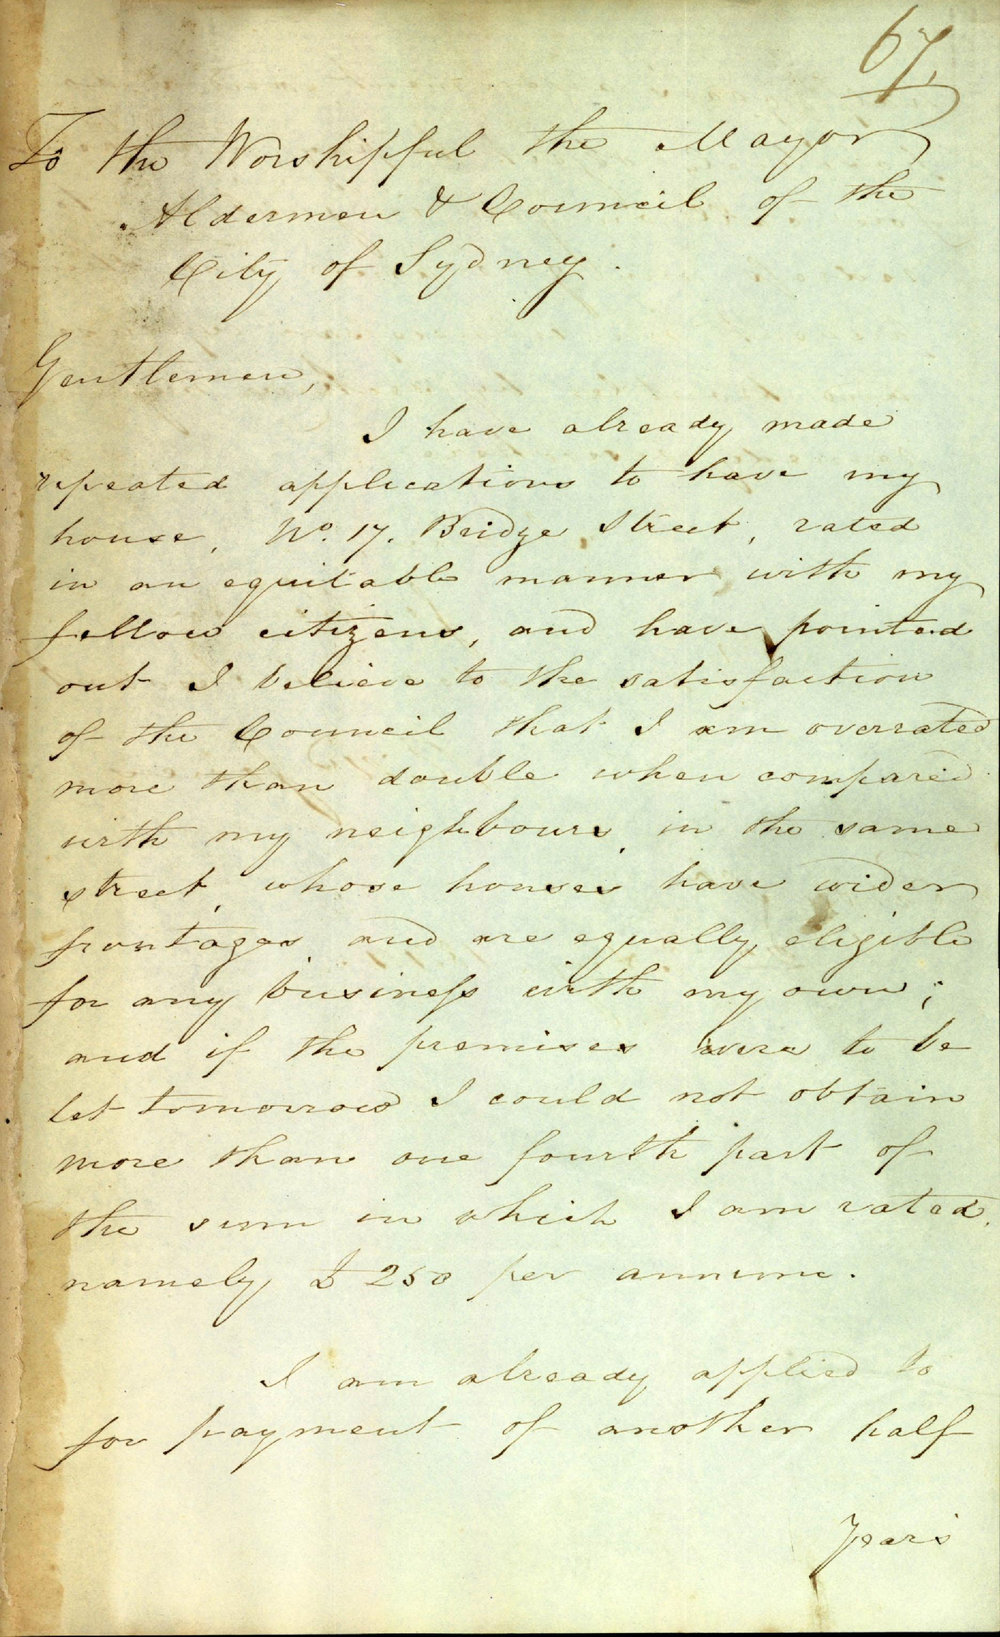 67,
To the Worshipful the Mayor
Aldermen & Council of the
City of Sydney.
Gentlemen,
I have already made
repeated applications to have my
house, No. 17. Bridge Street, rated
in an equitable manner with my
fellow citizens, and have pointed
out I believe to the satisfaction
of the Council that I am overrated
more than double when compared
with my neighbours, in the same
street, whose houses have wider
frontages and are equally eligible
for any business with my own;
and if the premises were to be
let tomorrow I could not obtain
more than one fourth part of
the sum in which I am rated,
namely £250 per annum.
I am already applied to
for payment of another half
years